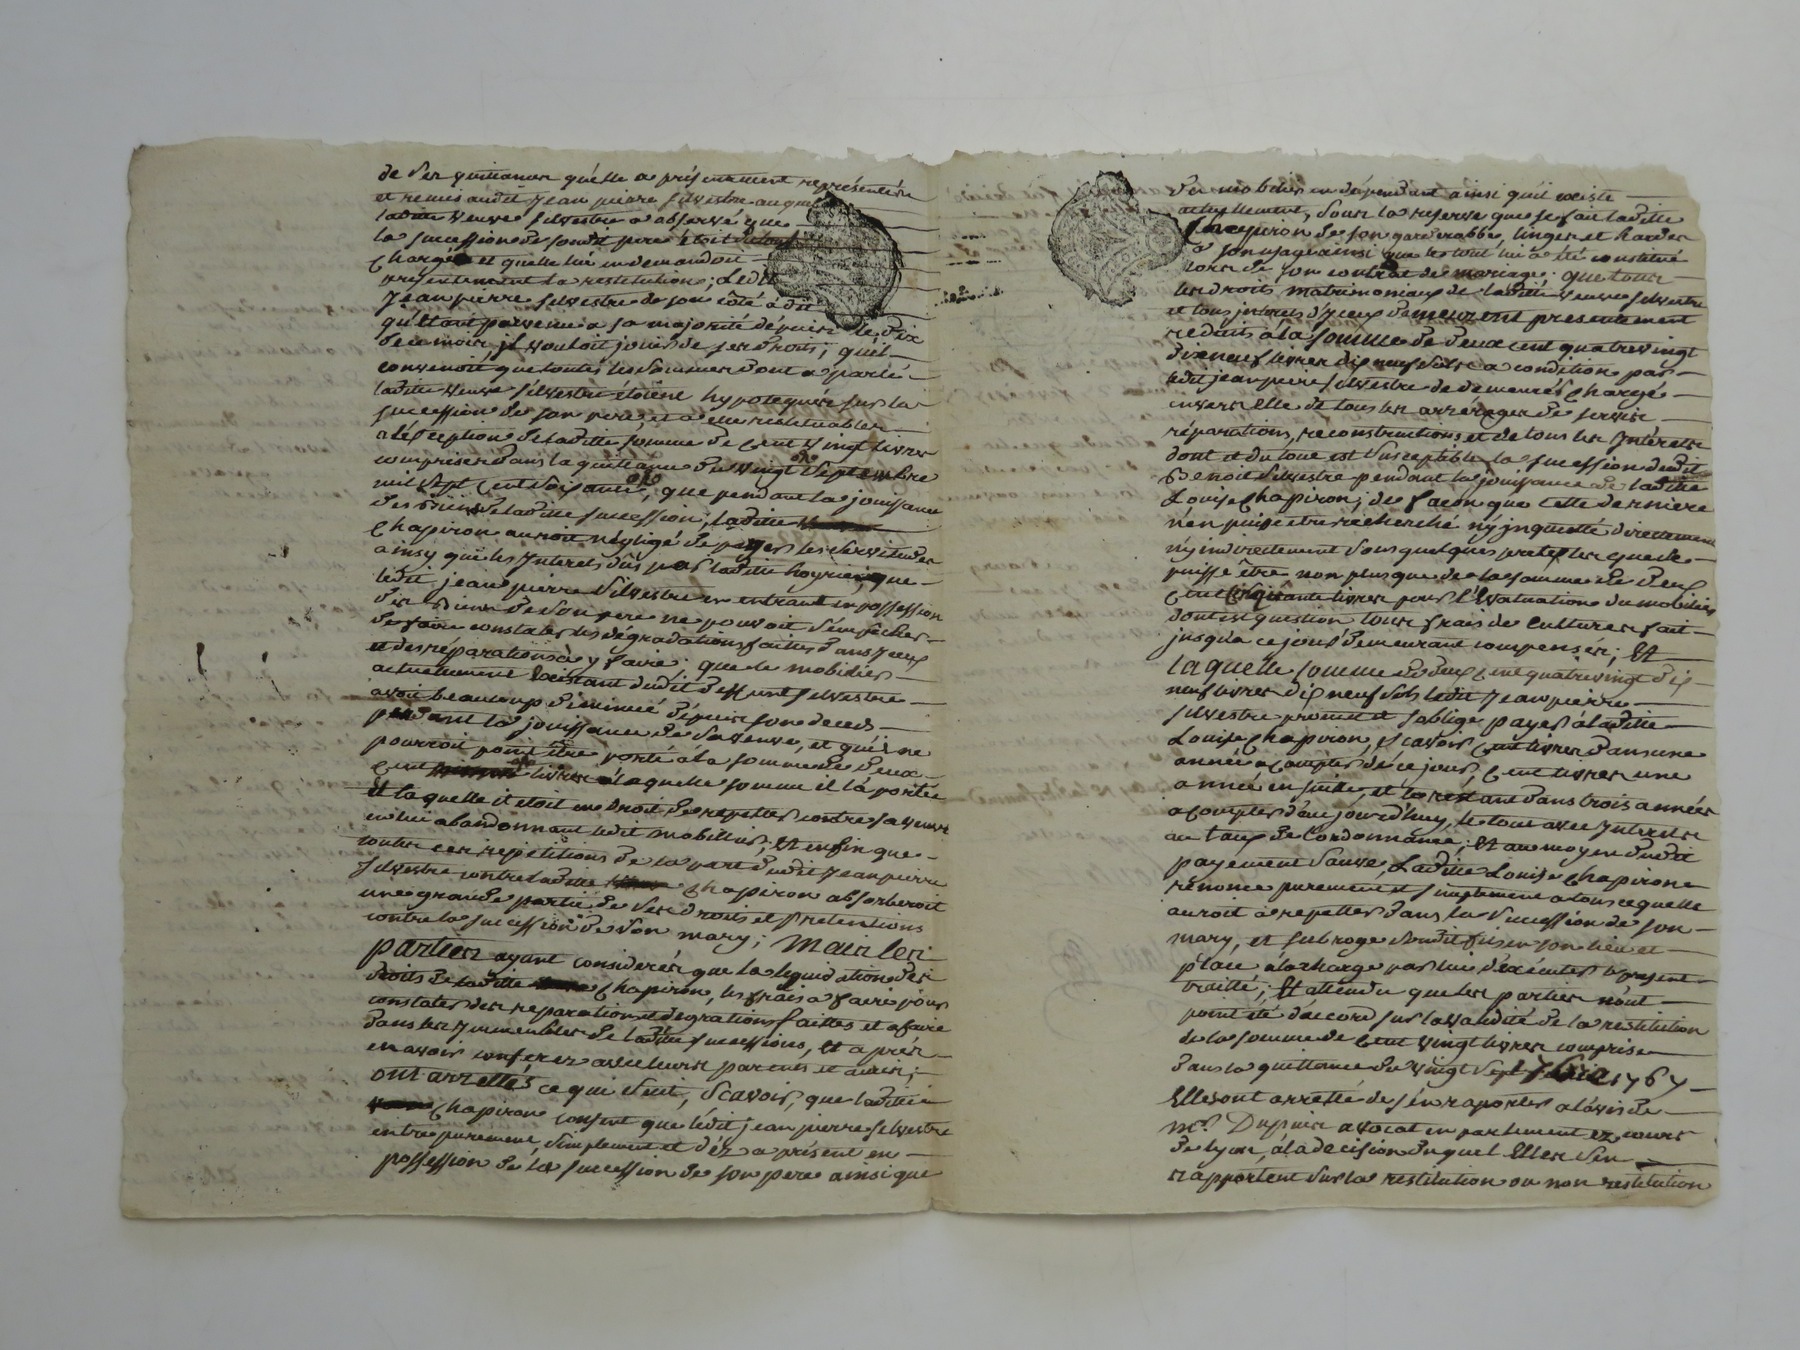 de ses quittances qu'elle a présentement représentées
et remis audit Jean pierre silvestre auquel
laditte veuve silvestre a observé que
la succession de soudit pere étoit
chargée et quelle lui en demandoit
présentement la restitution; Ledit
Jean pierre silvestre de son côté a dit
qu'Etant parvenu a sa majorité dépuis le dix
de ce mois, jl vouloit jouir de ses droits; quil
convenoit que toutes les sommes dont a parlé
laditte veuve silvestre étoient hypotequés sur la
succession de son pere, et a elle restituables
a léxception de laditte somme de Cent vingt livres
comprise dans la quittance du vingt Septembre
mil sept cent soixante, que pendant la jouissance
des Biens de laditte succession; laditte
chapiron auroit négligé de payer les servitudes
ainsy que les Interets dûs par laditte hoyrie; que
ledit jean pierre silvestre en entrant en possession
des Biens de son pere ne pouvoit s'émpêcher
de faire constater les dégradations faittes dans Iceux
et des réparations a y faire; que le mobilier
actuellement Existant dudit deffunt silvestre
avoit beaucoup diminué dépuis son deceds
pendant la jouissance de sa veuve, et qu'il ne
pourroit point être porté a la somme de deux
cent livres a laquelle somme il l'a portée
Et laquelle il etoit en droit de repetter contre sa veuve
en lui abandonnant ledit mobillier; Et enfin que
toutes ces repetitions de la part dudit Jean pierre
silvestre contre laditte chapiron absorberoit
une grande partie de ses droits et pretentions
contre la succession de son mary; Mais les
parties ayant considerés que la liquidation des
droits de laditte chapiron, les frais a faire pour
constater des reparations et degrations faittes et a faire
dans les Immeubles de laditte succession, Et a près
en avoir conferez avec leurs parents et amis;
ont arrettés ce qui suit, Scavoir, que laditte
chapiron consent que lédit jean pierre silvestre
entre purement, simplement et d'éz a présent en
possession de la succession de son pere ainsi que
des mobilier en dépendant ainsi quil éxiste
actuellement, sous la reserve que se fait laditte
chapiron de son garderobbe, linges et hardes
a son usage ainsi que le tout lui a été constitué
lors de son contrat de mariage; que tous
les droits matrimoniaux de laditte veuve silvestre
et tous jnterets d'Iceux demeurent presentement
reduits a la somme de deux cent quatrevingt
dixneuf livres dix neuf sols a condition par
ledit jean pierre silvestre de demeurer chargé
envers Elle de tous les arrérages de servis
réparations, reconstructions et de tous les Jnterets
dont et du tout est susceptible la succession dudit
Benoit silvestre pendant la jouissance de laditte
Louise chapiron; de façon que cette derniere
n'en puisse etre recherché n'y jnquietté directement
n'y indirectement sous quelques pretextes que ce
puisse être non plus que de la somme de deux
cent Cinquante livres pour l'Evaluation du mobilier
dont est question tous frais de cultures fait
jusqu'a ce jour demeurant compensés; Et
laquelle somme de deux cent quatre vingt dix
neuf livres dix neuf sols ledit Jean pierre
silvestre promet et soblige payer a laditte
Louise chapiron, scavoir cent livres dans une
année a compter de ce jour, cent livres une
année en suitte, et le restant dans trois années
a compter d'aujourd'huy, le tout avec Jnterets
au taux de Lordonnance; Et au moyen dudit
payement sauve, Laditte Louise chapiron
rénonce purement et simplement a tous ce quelle
auroit a repetter dans la succession de son
mary, et subroge soudit fils en son lieu et
place a la charge par lui d'éxécuter le present
traitté; Et attendu que les parties nónt
point été d'accord sur la validité de la restitution
de la somme de Cent vingt livres comprise
dans la quittance du vingt 1767
Elles ont arretté de s'én raporter a l'avis de
Me. Dupuis avocat en parlement ez cours
de lyon, a la decision duquel Elles s'en
rapportent sur la restitution ou non restitution